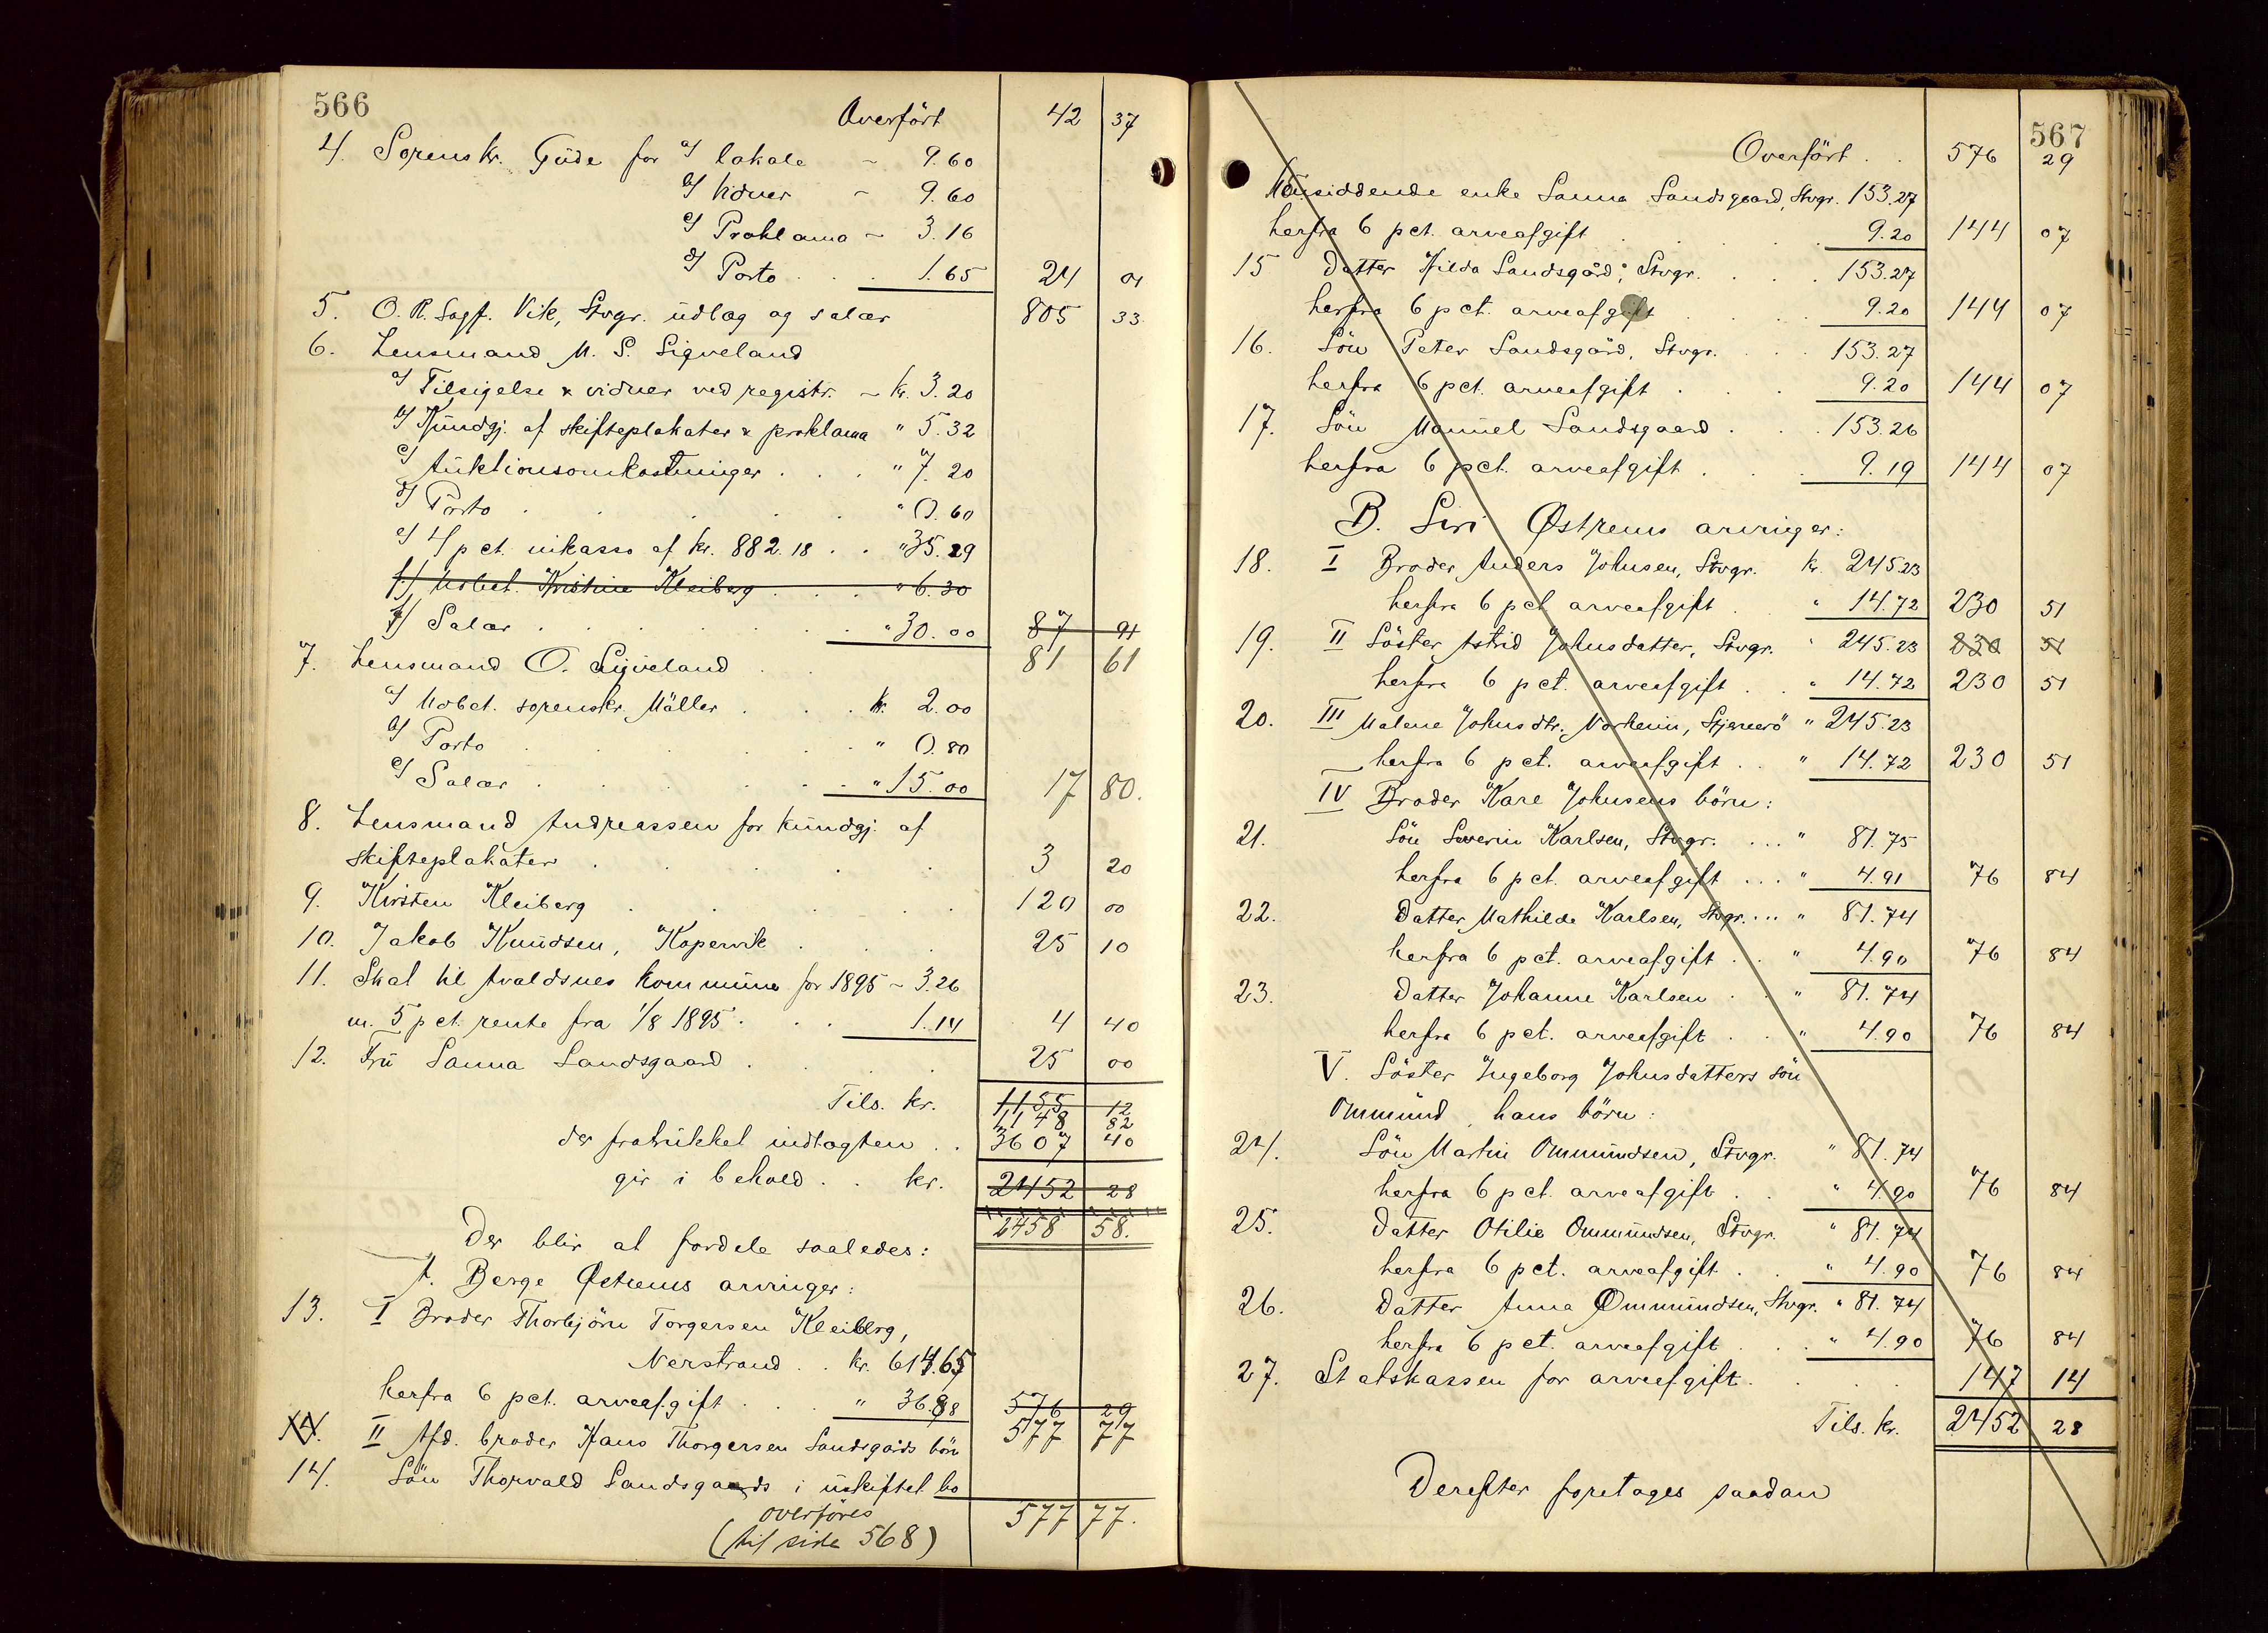 566
Overført 42 37
4. Sorenskr. Gude for a/ lokale ~ 9.60
b/ vidner ~ 9.60
c/ Proklama ~ 3.16
d/ Porto . . 1.65 24 01
5. O. R. Sagf. Vik, Stvgr. udlæg og salær 805 33
6. Lensmand M. S. Sigveland
a/ Tilsigelse & vidner ved registr. ~ kr. 3.20
b/ Kundgj. af skifteplakater & proklama " 5.32
c/ Auktionsomkostninger . . . " 7.20
d/ Porto . . . . . " 0.60
e/ 4 pct. inkasso af kr. 882.18 . . " 35.29
f./ Udbet. Kristine Kleiberg . . . " 6.30
f/ Salær . . . . . . " 30.00 87 91
7. Lensmand O. Sigveland . 81 61
a/ Udbet. sorenskr. Møller . . . kr. 2.00
b/ Porto . . . . . " 0.80
c/ Salær . . . . . " 15.00 17 80.
8. Lensmand Andreassen for kundgj. af
skifteplakater . . . . . 3 20
9. Kirsten Kleiberg . . . . . 120 00
10. Jakob Knudsen, Kopervik . . . 25 10
11. Skat til Avaldsnes kommune for 1895 ~ 3.26
m. 5 pct. rente fra 1/8 1895 . . . 1.14 4 40
12. Fru Sanna Sandsgaard . . . 25 00
Tils. kr. 1155 12
1148 82
der fratrukket indtægten . . 3607 40
gir i behold . . kr. 2452 28
2458 58.
Der blir at fordele saaledes:
A. Berge Østrems arvinger:
13. I Broder Thorbjørn Torgersen Kleiberg,
Nerstrand . . kr. 614.65
herfra 6 pct. arveafgift . . . " 36.88 576 29
577 77
14. II Afd. broder Hans Thorgersen Sandsgårds børn
14. Søn Thorvald Sandsgaards i uskiftet bo
overføres 577 77.
(til side 568)
567
Overført . . 576 29
Uensiddende enke Sanna Sandsgaard, Stvgr. 153.27
herfra 6 pct. arveafgift . . . . 9.20 144 07
15 Datter Hilda Sandsgård, Stvgr. . . . 153.27
herfra 6 pct. arveafgift . . . 9.20 144 07
16. Søn Peter Sandsgård, Stvgr. . . . 153.27
herfra 6 pct. arveafgift . . . 9.20 144 07
17. Søn Manuel Sandsgaard . . . 153.26
herfra 6 pct. arveafgift . . . 9.19 144 07
B. Siri Østrems arvinger:
18. I Broder Anders Johnsen, Stvgr. kr. 245.23
herfra 6 pct. arveafgift . " 14.72 230 51
19. II Søster Astrid Johnsdatter, Stvgr. " 245.23 230 51
herfra 6 pct. arveafgift . . " 14.72 230 51
20. III Malene Johnsdtr. Norheim, Stjernerø " 245.23
herfra 6 pct. arveafgift . . " 14.72 230 51
IV Broder Kare Johnsens børn:
21. Søn Severin Karlsen, Stvgr. . . . " 81.75
herfra 6 pct. arveafgift . . . " 4.91 76 84
22. Datter Mathilde Karlsen, Stvgr. . . . " 81.74
herfra 6 pct. arveafgift . . " 4.90 76 84
23. Datter Johanne Karlsen . . " 81.74
herfra 6 pct. arveafgift . . " 4.90 76 84
V. Søster Ingeborg Johnsdatters søn
Ommund, hans børn:
24. Søn Martin Ommundsen, Stvgr. " 81.74
herfra 6 pct. arveafgift . . " 4.90 76 84
25. Datter Otilie Ommundsen, Stvgr. " 81.74
herfra 6 pct. arveafgift . . " 4.90 76 84
26. Datter Anna Ommundsen, Stvgr. " 81.74
herfra 6 pct. arveafgift . . . " 4.90 76 84
27. Statskassen for arveafgift . . . . 147 14
Tils. kr. 2452 28
Derefter foretages saadan